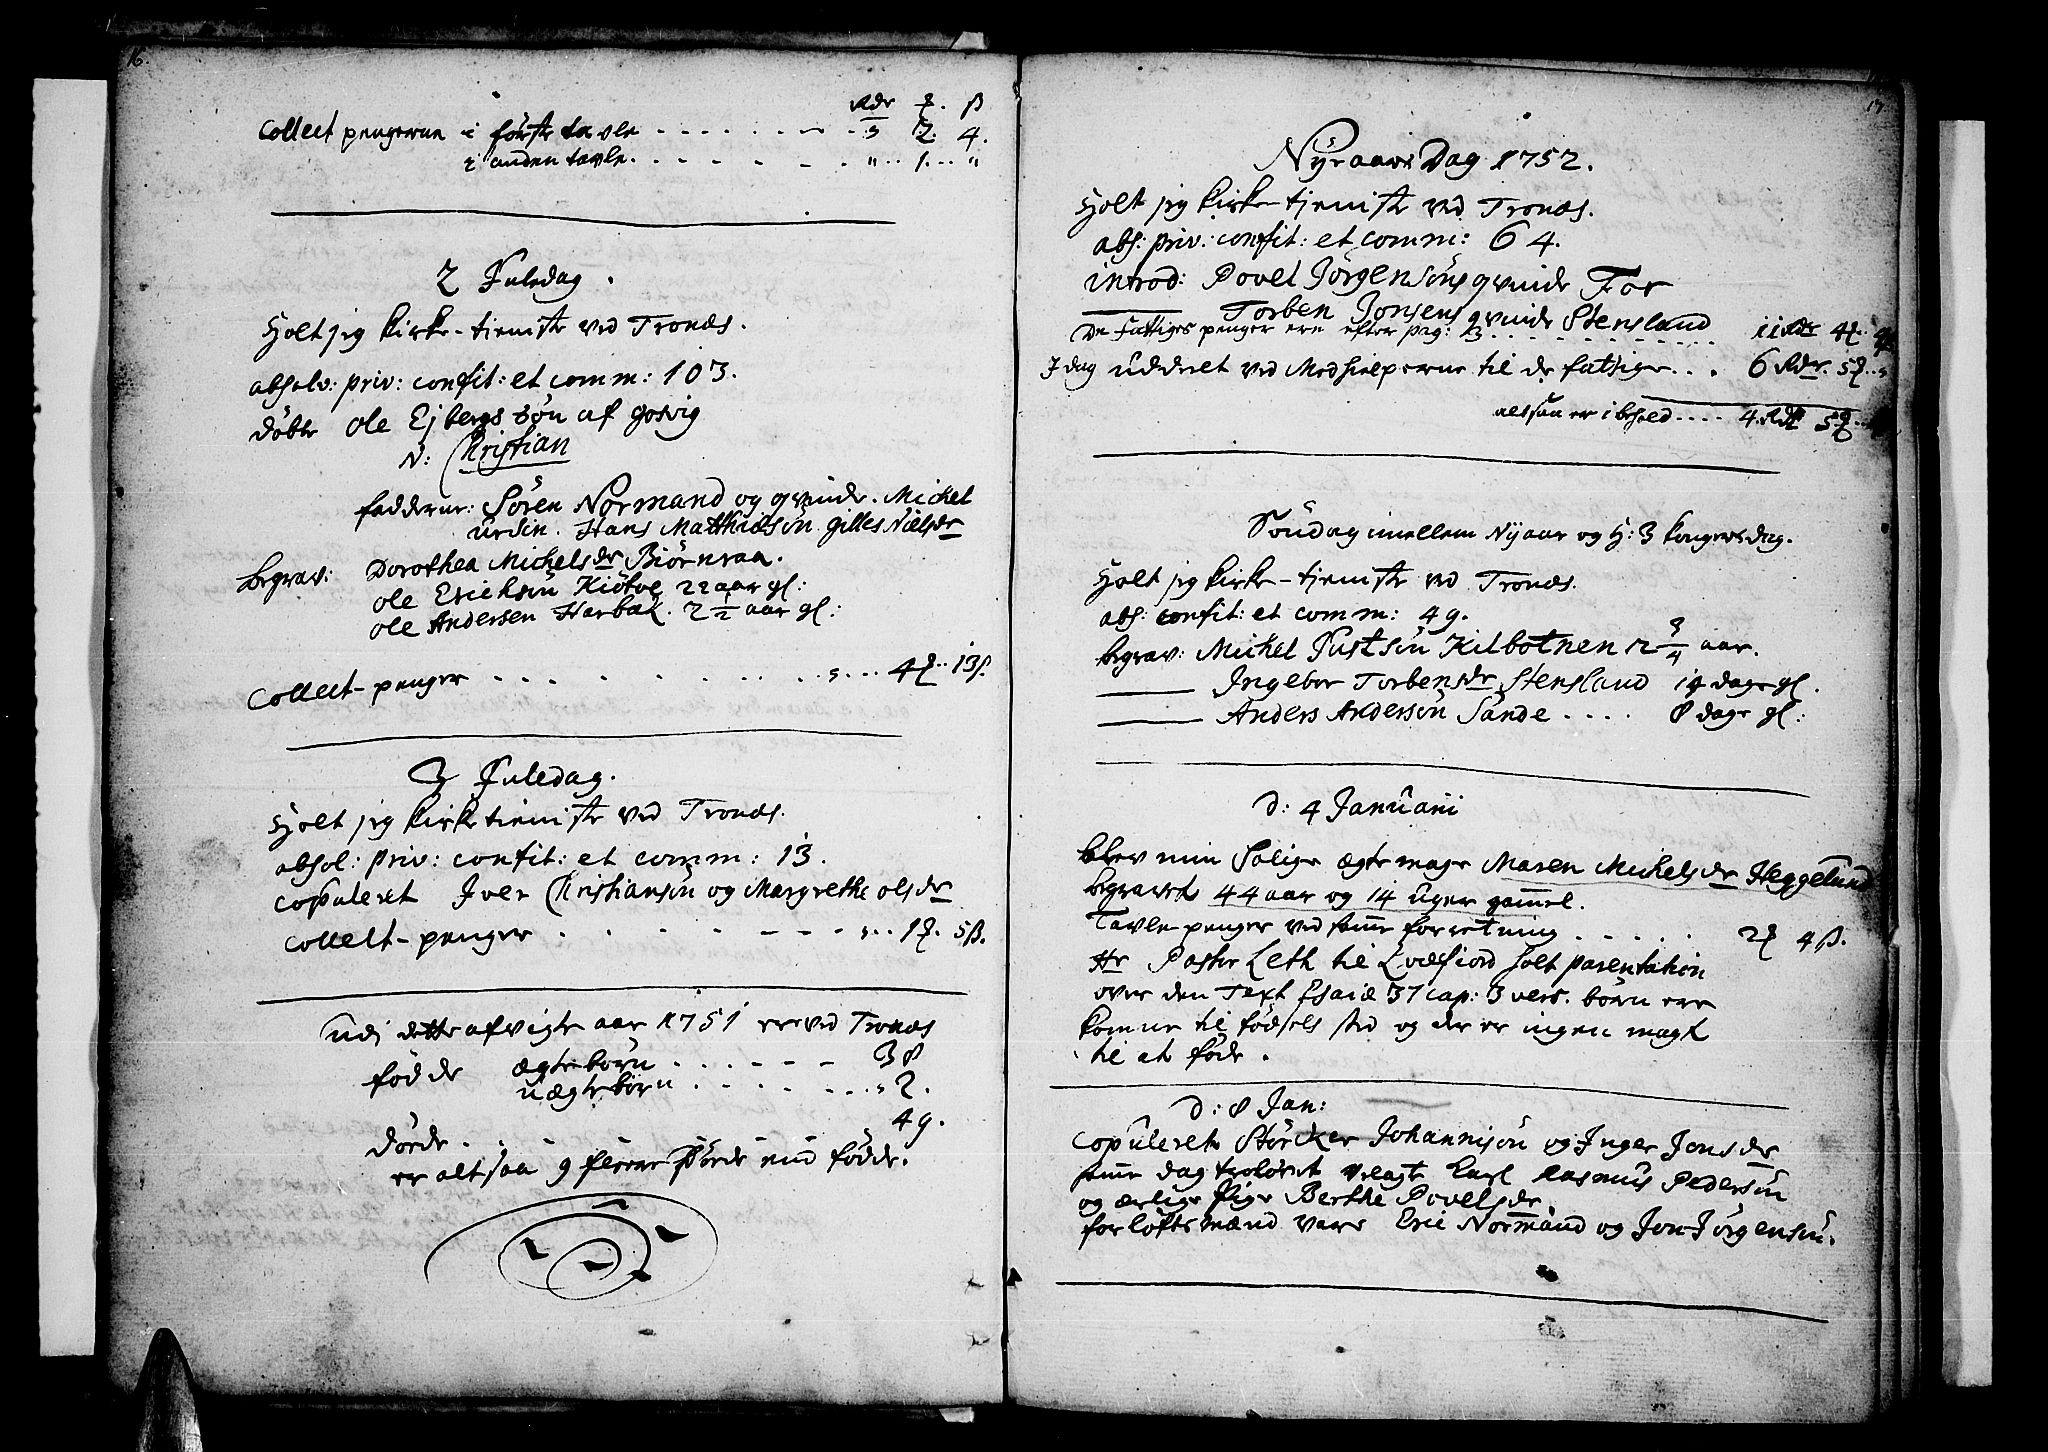 16.
Rdr ꝣ. ß
Collect pengerne i förste tavle . . . . . . . 3 2. 4.
i anden tavle. . . . . . . " .. 1. .. "
2 Juledag.
Holt jeg kirke-tieniste ved Tronæs.
absolv: priv: confit: et comm: 103.
döbte Ole Ejbergs sön af gosvig
N: Christian
fadderne: Sören Normand og qvinde. Michel
Ursin. Hans Matthiæsön gilles Nielsdr
begrav: Dorothea Michelsdr Biörnraa.
Ole Erichsön Kiötoe 22 aar gl:
Ole Andersen Harbak. 2 1/2 aar gl:
Collect-penger . . . . . . . . . . 4ꝣ .. 13ß.
3 Juledag.
Holt jeg kirke tieniste ved Tronæs.
absol: priv: confit: et comm: 13.
copuleret Iver Christiansön og Margrethe olsdr
Collect-penger . . . . . . . . . . 1ꝣ. 5ß.
Udi dette afvigte aar 1751 ere ved Tronæs
födde ægte börn . . . . . . 38
uægte börn . . . . . . . " 2.
dörde . . . . 49.
er altsaa 9 fleere dörde end födde.
17.
Nyraars Dag 1752.
Holt jeg kirke-tieniste ved Tronæs.
abs: priv: confit: et comm: 64.
introd: Povel Jörgensöns qvinde For
Torben Jonsens qvinde Stensland
De Fattiges penger ere efter pag: 13 . . . . . . . . . . 11 Rdr 4ꝣ
I dag uddelet ved Medhielperne til de fattige . . . 6 Rdr. 5ꝣ..
altsaa er i behold . . . . 4. Rdr 5ꝣ..
Söndag imellem Nyaar og H: 3 kongersdag.
Holt jeg kirke-tieniste ved Tronæs.
abs: confit: et comm: 49.
begrav: Michel Justsön Kilbotnen 2 3/4 aar.
Ingebor Torbensdr Stensland 14 dage gl.
Anders Andersön Sande . . . . 8 dage gl:
d: 4 Januarii
blev min Salige ægte mage Maren Michelsdr Heggelund
begravet 44 aar og 14 Uger gammel.
Tavle-penger ved samme forretning . . . . . 2ꝣ 4ß.
Hr Pastor Leth til Qvæfiord holt parentation
over den Text Esaiæ 37 cap: 3 vers. börn ere
komne til födsels sted og der er ingen magt
til at föde.
d: 8 Jan:
copulerete Störcker Johannisön og Inger Jonsdr
samme dag trolovet velagt karl Rasmus Pedersön
og ærlige Pige Berthe Povelsdr
forlöftsmænd vare Eric Normand og Jon Jörgensön.